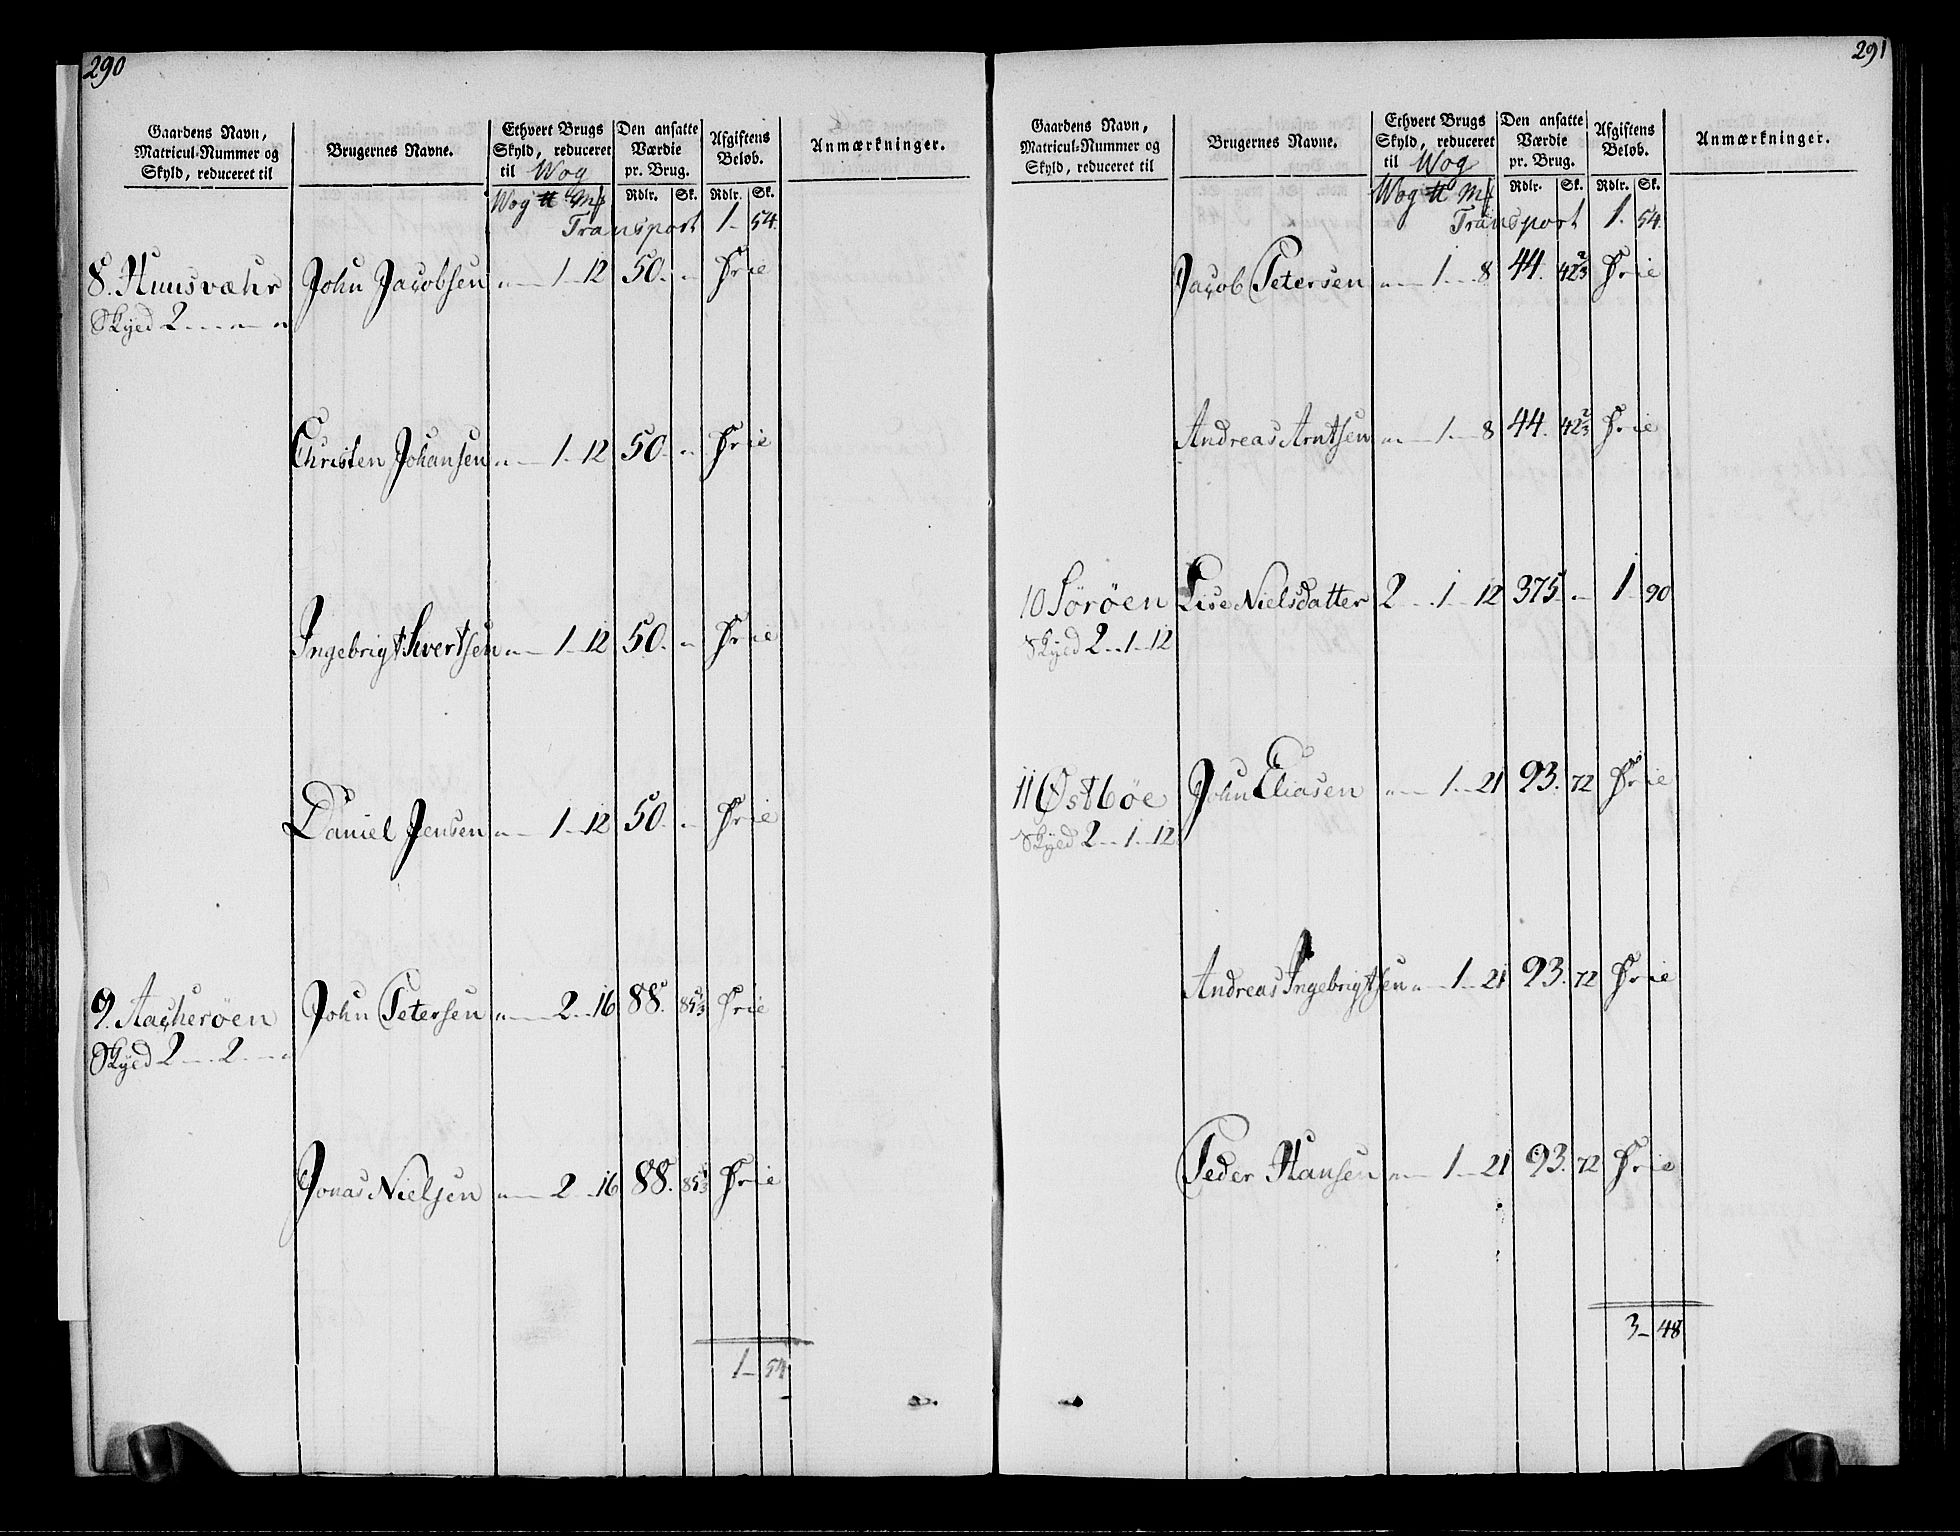 290
Gaardens Navn, Matricul-Nummer og Skyld, reduceret til | Brugernes Navne. | Ethvert Brugs Skyld, reduceret til Wog | Den ansatte Værdie pr. Brug. | Afgiftens Beløb. | Anmærkninger.
Wog ℔ Mk | Rdlr. | Sk. | Rdlr. | Sk.
Transport 1 - 54.
8. Huusvæhr John Jacobsen " - 1 - 12 50. - " Frie
Skyed 2 - " - "
Christen Johansen " - 1 - 12 50. - " Frie
Ingebrigt Sivertsen " - 1 - 12 50. - " Frie
Daniel Jensen " - 1 - 12 50. - " Frie
9. Aacherøen John Petersen " - 2 - 16 88. 85 1/3 Frie
Skyed 2 - 2 - "
Jonas Nielsen " - 2 - 16 88. 85 1/3 Frie
1 - 54
291
Gaardens Navn, Matricul-Nummer og Skyld, reduceret til | Brugernes Navne. | Ethvert Brugs Skyld, reduceret til Wog | Den ansatte Værdie pr. Brug. | Afgiftens Beløb. | Anmærkninger.
Wog ℔ Mk | Rdlr. | Sk. | Rdlr. | Sk.
Transport 1. 54.
Jacob Petersen " - 1 - 8 44. 42 2/3 Frie
Andreas Arntsen " - 1 - 8 44. 42 2/3 Frie
10 Sørøen Lise Nielsdatter 2 - 1 - 12 375 - " 1 - 90
Skyed 2 - 1 - 12
11 Østbøe John Eliasen " - 1 - 21 93. 72 Frie
Skyed 2 - 1 - 12
Andreas Ingebrigtsen " - 1 - 21 93. 72 Frie
Peder Hansen " - 1 - 21 93. 72 Frie
3 - 48